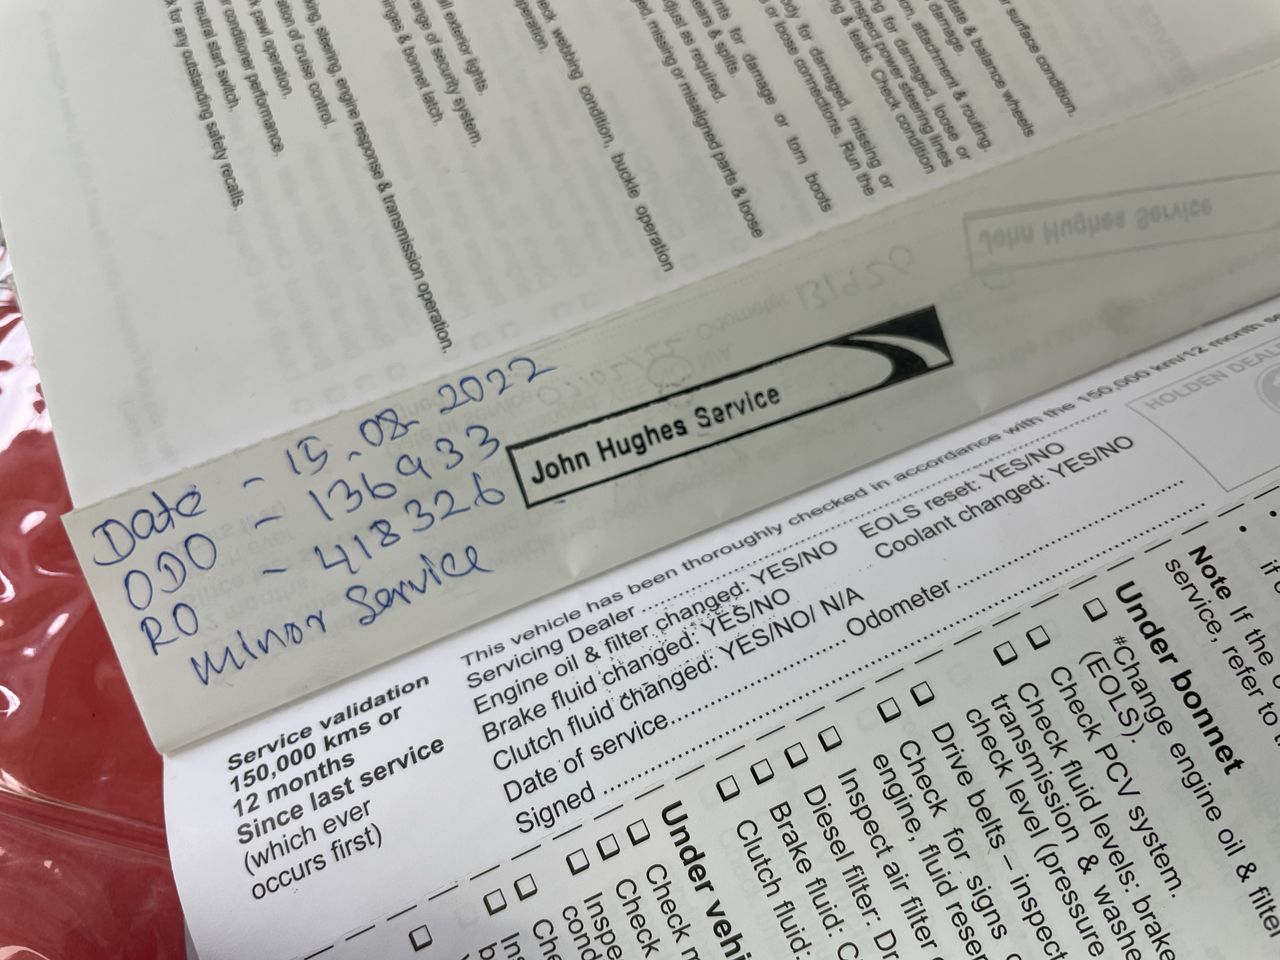 k for any outstanding safety recalls.
neutral start switch.
r conditioner performance.
k pawl operation.
ation of cruise control.
king, steering, engine response & transmission operation.
inges & bonnet latch.
range of security system.
ll exterior lights.
peration.
eck webbing condition, buckle operation
ged, missing or misaligned parts & loose
djust as required.
ers & spills.
nts for damage or torn boots
or loose connections. Run the
ody for damaged, missing or
ng & leaks. Check condition
inspect power steering lines
ng for damaged, loose or
on, attachment & routing
damage.
tate & balance wheels
r surface condition.
John Hughes Service
Odometer 131920
Date - 15.08.2022
ODO - 136933
RO - 418326
Minor Service
John Hughes Service
Service validation
150,000 kms or
12 months
Since last service
(which ever
occurs first)
This vehicle has been thoroughly checked in accordance with the 150,000 km/12 month se
Servicing Dealer
Engine oil & filter changed: YES/NO EOLS reset: YES/NO
Brake fluid changed: YES/NO Coolant changed: YES/NO
Clutch fluid changed: YES/NO/ N/A
Date of service Odometer
Signed
HOLDEN DEAL
Note If the
service, refer to
Under bonnet
#Change engine oil & filter
(EOLS).
Check PCV system.
Check fluid levels: brake
transmission & washe
check level (pressure
Drive belts – inspect
Check for signs
engine, fluid reser
Inspect air filter
Diesel filter: Dr
Brake fluid: C
Clutch fluid:
Under vehi
Check m
Check
Inspe
cond
Che
Ins